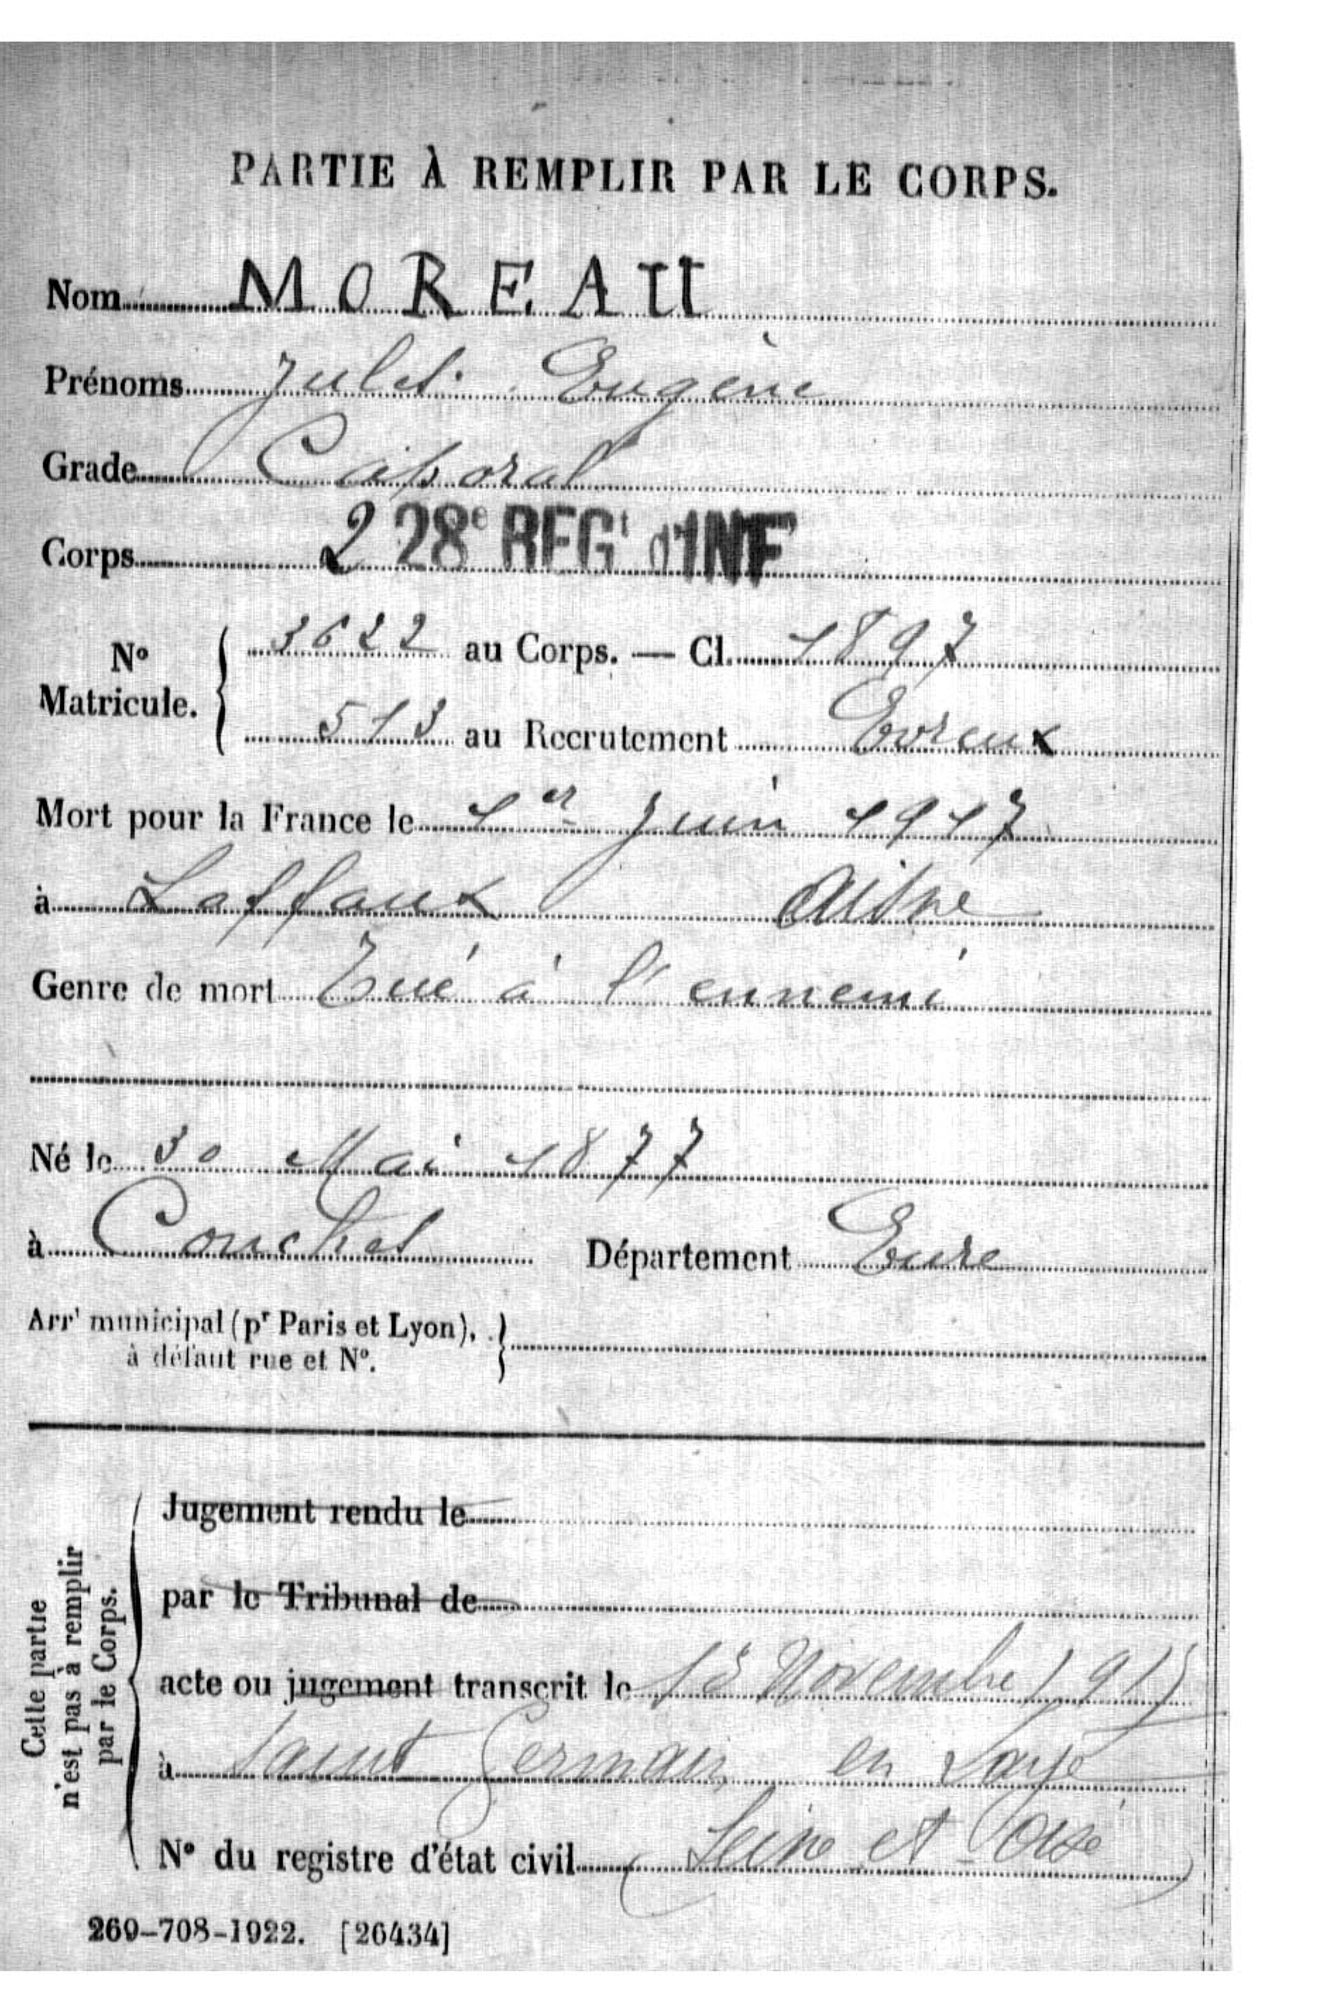 PARTIE À REMPLIR PAR LE CORPS.
Nom MOREAU
Prénoms Jules Eugène
Grade Caporal
Corps 228e REGt d'INF
No Matricule. 3622 au Corps. — Cl. 1897
513 au Recrutement Evreux
Mort pour la France le 1er Juin 1917
à Laffaux Aisne
Genre de mort Tué à l'ennemi
Né le 30 Mai 1877
à Conches Département Eure
Arrt municipal (pr Paris et Lyon),
à défaut rue et No.
Cette partie
n'est pas à remplir
par le Corps.
Jugement rendu le
par le Tribunal de
acte ou jugement transcrit le Novembre 1917
à Saint Germain en Laye
No du registre d'état civil (Seine et Oise)
269-708-1922. [26434]